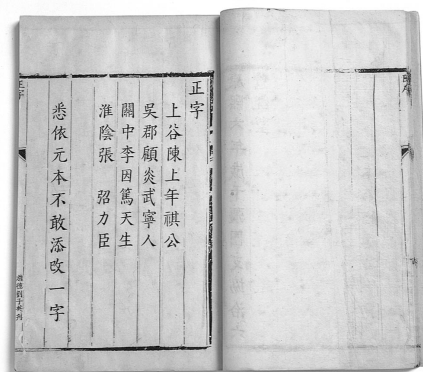 正字
上谷陳上年祺公
吳郡顧炎武寧人
關中李因篤天生
淮陰張 弨力臣
悉依元本不敢添改一字
正字